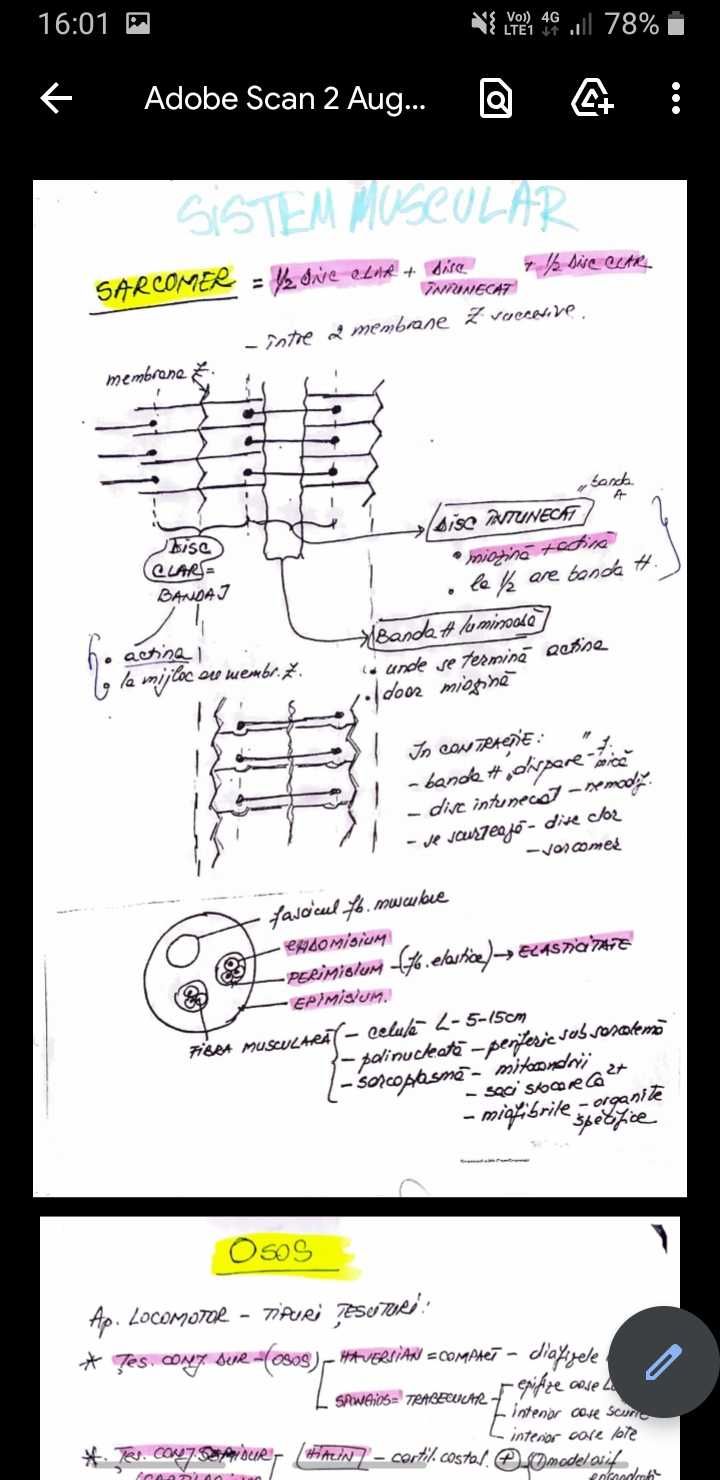 16:01
Vo)) 4G
LTE1
78%
Adobe Scan 2 Aug...
SISTEM MUSCULAR
SARCOMER = 1/2 DISC CLAR + DISC ÎNTUNECAT + 1/2 DISC CLAR
- între 2 membrane Z succesive.
membrana Z.
"banda A
DISC ÎNTUNECAT
• miozină + actină
• la 1/2 are banda H.
DISC
CLAR =
BANDA I
• actina
• la mijloc are membr. Z.
Banda H luminoasă
• unde se termină actina
• doar miozină
În CONTRACȚIE:
- banda H "dispare" - f. mică
- disc intunecat - nemodif.
- se scurtează - disc clar
- sarcomer
fascicul fb. musculare
ENDOMISIUM
PERIMISIUM - (fb. elastice) → ELASTICITATE
EPIMISIUM.
FIBRA MUSCULARĂ
- celulă L - 5-15cm
- polinucleată - periferic sub sarcolemă
- sarcoplasmă - mitocondrii
- saci stocare Ca2+
- miofibrile - organite
specifice
OSOS
Ap. LOCOMOTOR - TIPURI ȚESUTURI:
* Țes. CONJ. DUR - (OSOS) - HAVERSIAN = COMPACT - diafizele
SPONGIOS = TRABECULAR - epifize oase
interior oase scurte
interior oase late
* Țes. CONJ SEMIDUR - HIALIN - cartil. costal. +